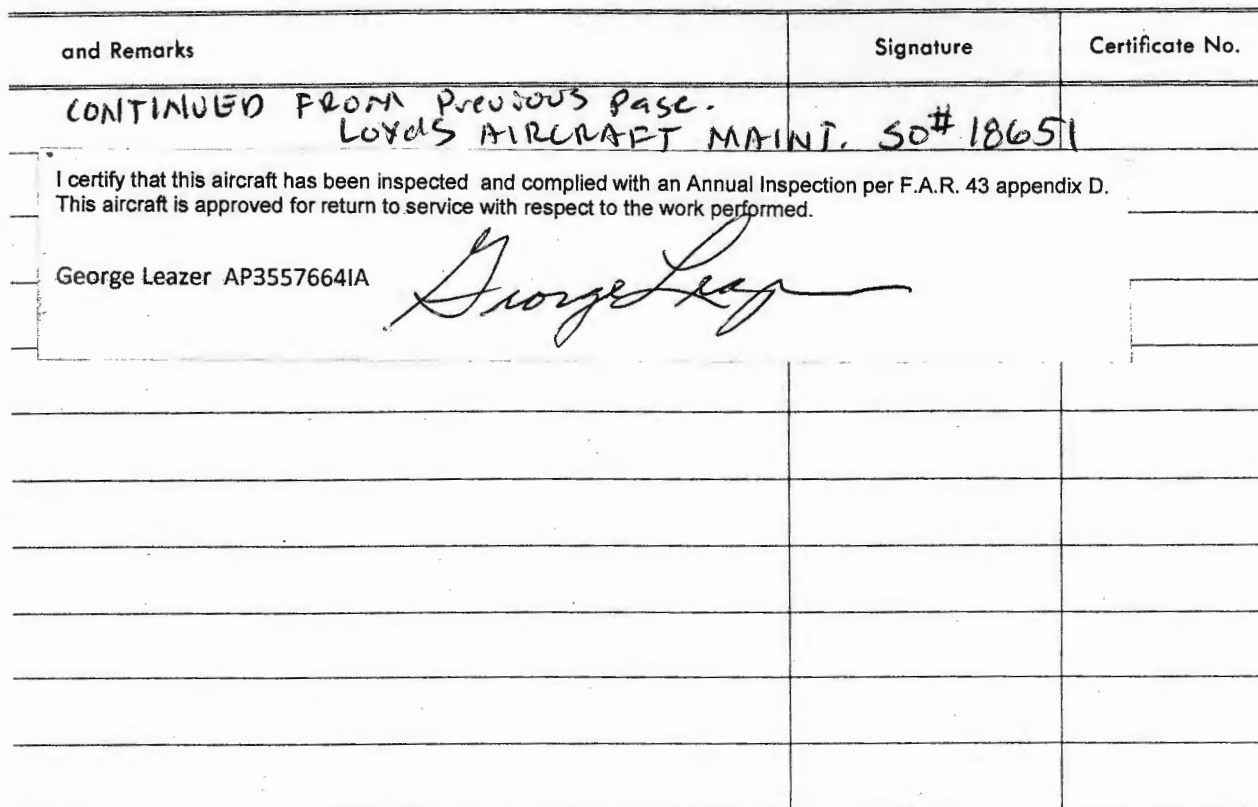 and Remarks Signature Certificate No.
CONTINUED FROM Previous Page.
LOYdS AIRCRAFT MAINT. SO# 18651
I certify that this aircraft has been inspected and complied with an Annual Inspection per F.A.R. 43 appendix D.
This aircraft is approved for return to service with respect to the work performed.
George Leazer AP3557664IA George Leazer